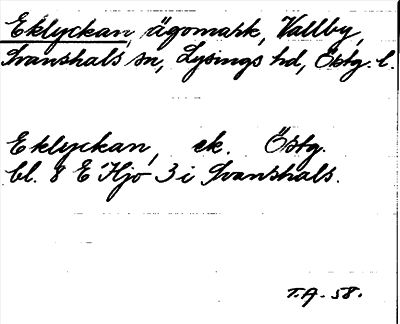 Eklyckan, ägomark, Vallby,
Svanshals sn, Lysings hd, Östg. l.
Eklyckan, ek. Östg.
bl. 8 E Hjo 3 i Svanshals.
T.A. 58.